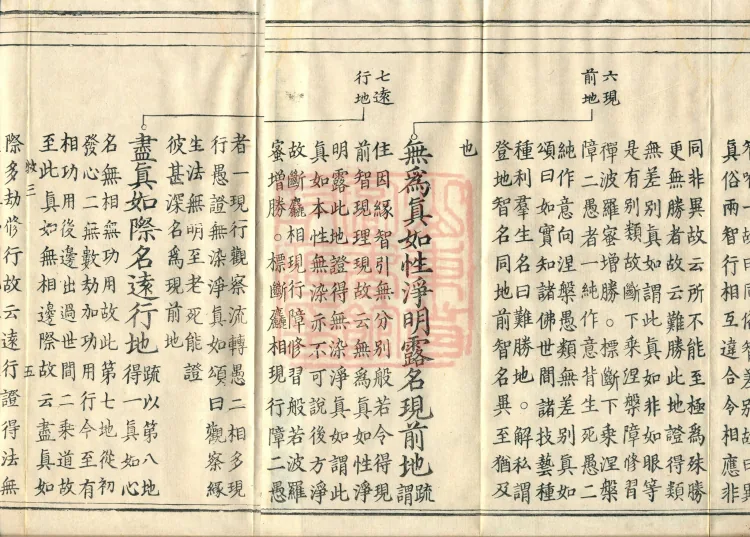 真俗兩智行相互違合令相應非
六現
前地
同非異故云所不能至極為殊勝
更無勝者故云難勝此地證得類
無差別真如謂此真如非如眼等
是有別類故斷下乘涅槃障修習
禪波羅蜜增勝。標斷下乘涅槃
障二愚者一純作意背生死愚二
純作意向涅槃愚類無差別真如
頌曰如實知諸佛世間諸技藝種
種利羣生名曰難勝地。解私謂
登地智名同地前智名異至猶及
也
七遠
行地
無為真如性淨明露名現前地疏謂
住因緣智引無分別般若令得現
前智現理現故云無為真如性淨
明露此地證得無染淨真如謂此
真如本性無染亦不可說後方淨
故斷麤相現行障修習般若波羅
蜜增勝。標斷麤相現行障二愚
者一現行觀察流轉愚二相多現
行愚證無染淨真如頌曰觀察緣
生法無明至老死能證
彼甚深名為現前地
盡真如際名遠行地疏以第八地
得一真如心
名無相無功用故此第七地從初
發心二無數劫加功用行今至有
相功用後邊出過世間二乘道故
至此真如無相邊際故云盡真如
三 五
際多劫修行故云遠行證得法無